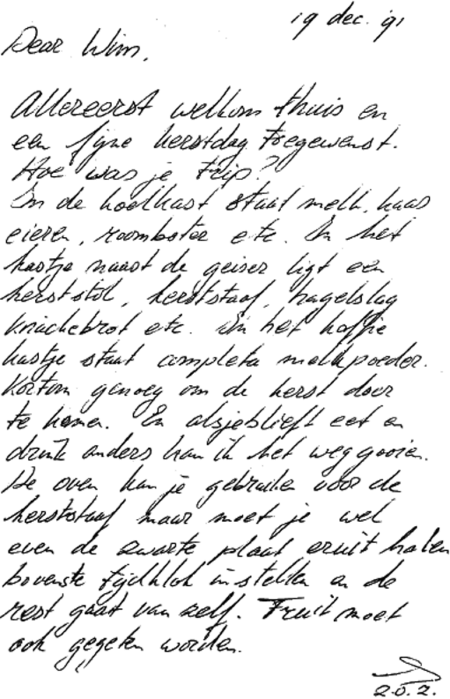 19 dec. '91
Dear Wim,
Allereerst welkom thuis en
een fijne kerstdag toegewenst.
Hoe was je trip?
In de koelkast staat melk, kaas
eieren, roomboter etc. In het
kastje naast de geiser ligt een
kerststol, kerststaaf, hagelslag
knäckebrot etc. In het koffie
kastje staat completa melkpoeder.
Kortom genoeg om de kerst door
te komen. En alsjeblieft eet en
drink anders kan ik het weggooien.
De oven kan je gebruiken voor de
kerststaaf maar moet je wel
even de zwarte plaat eruit halen
bovenste tijdklok instellen en de
rest gaat van zelf. Fruit moet
ook gegeten worden.
z.o.z.